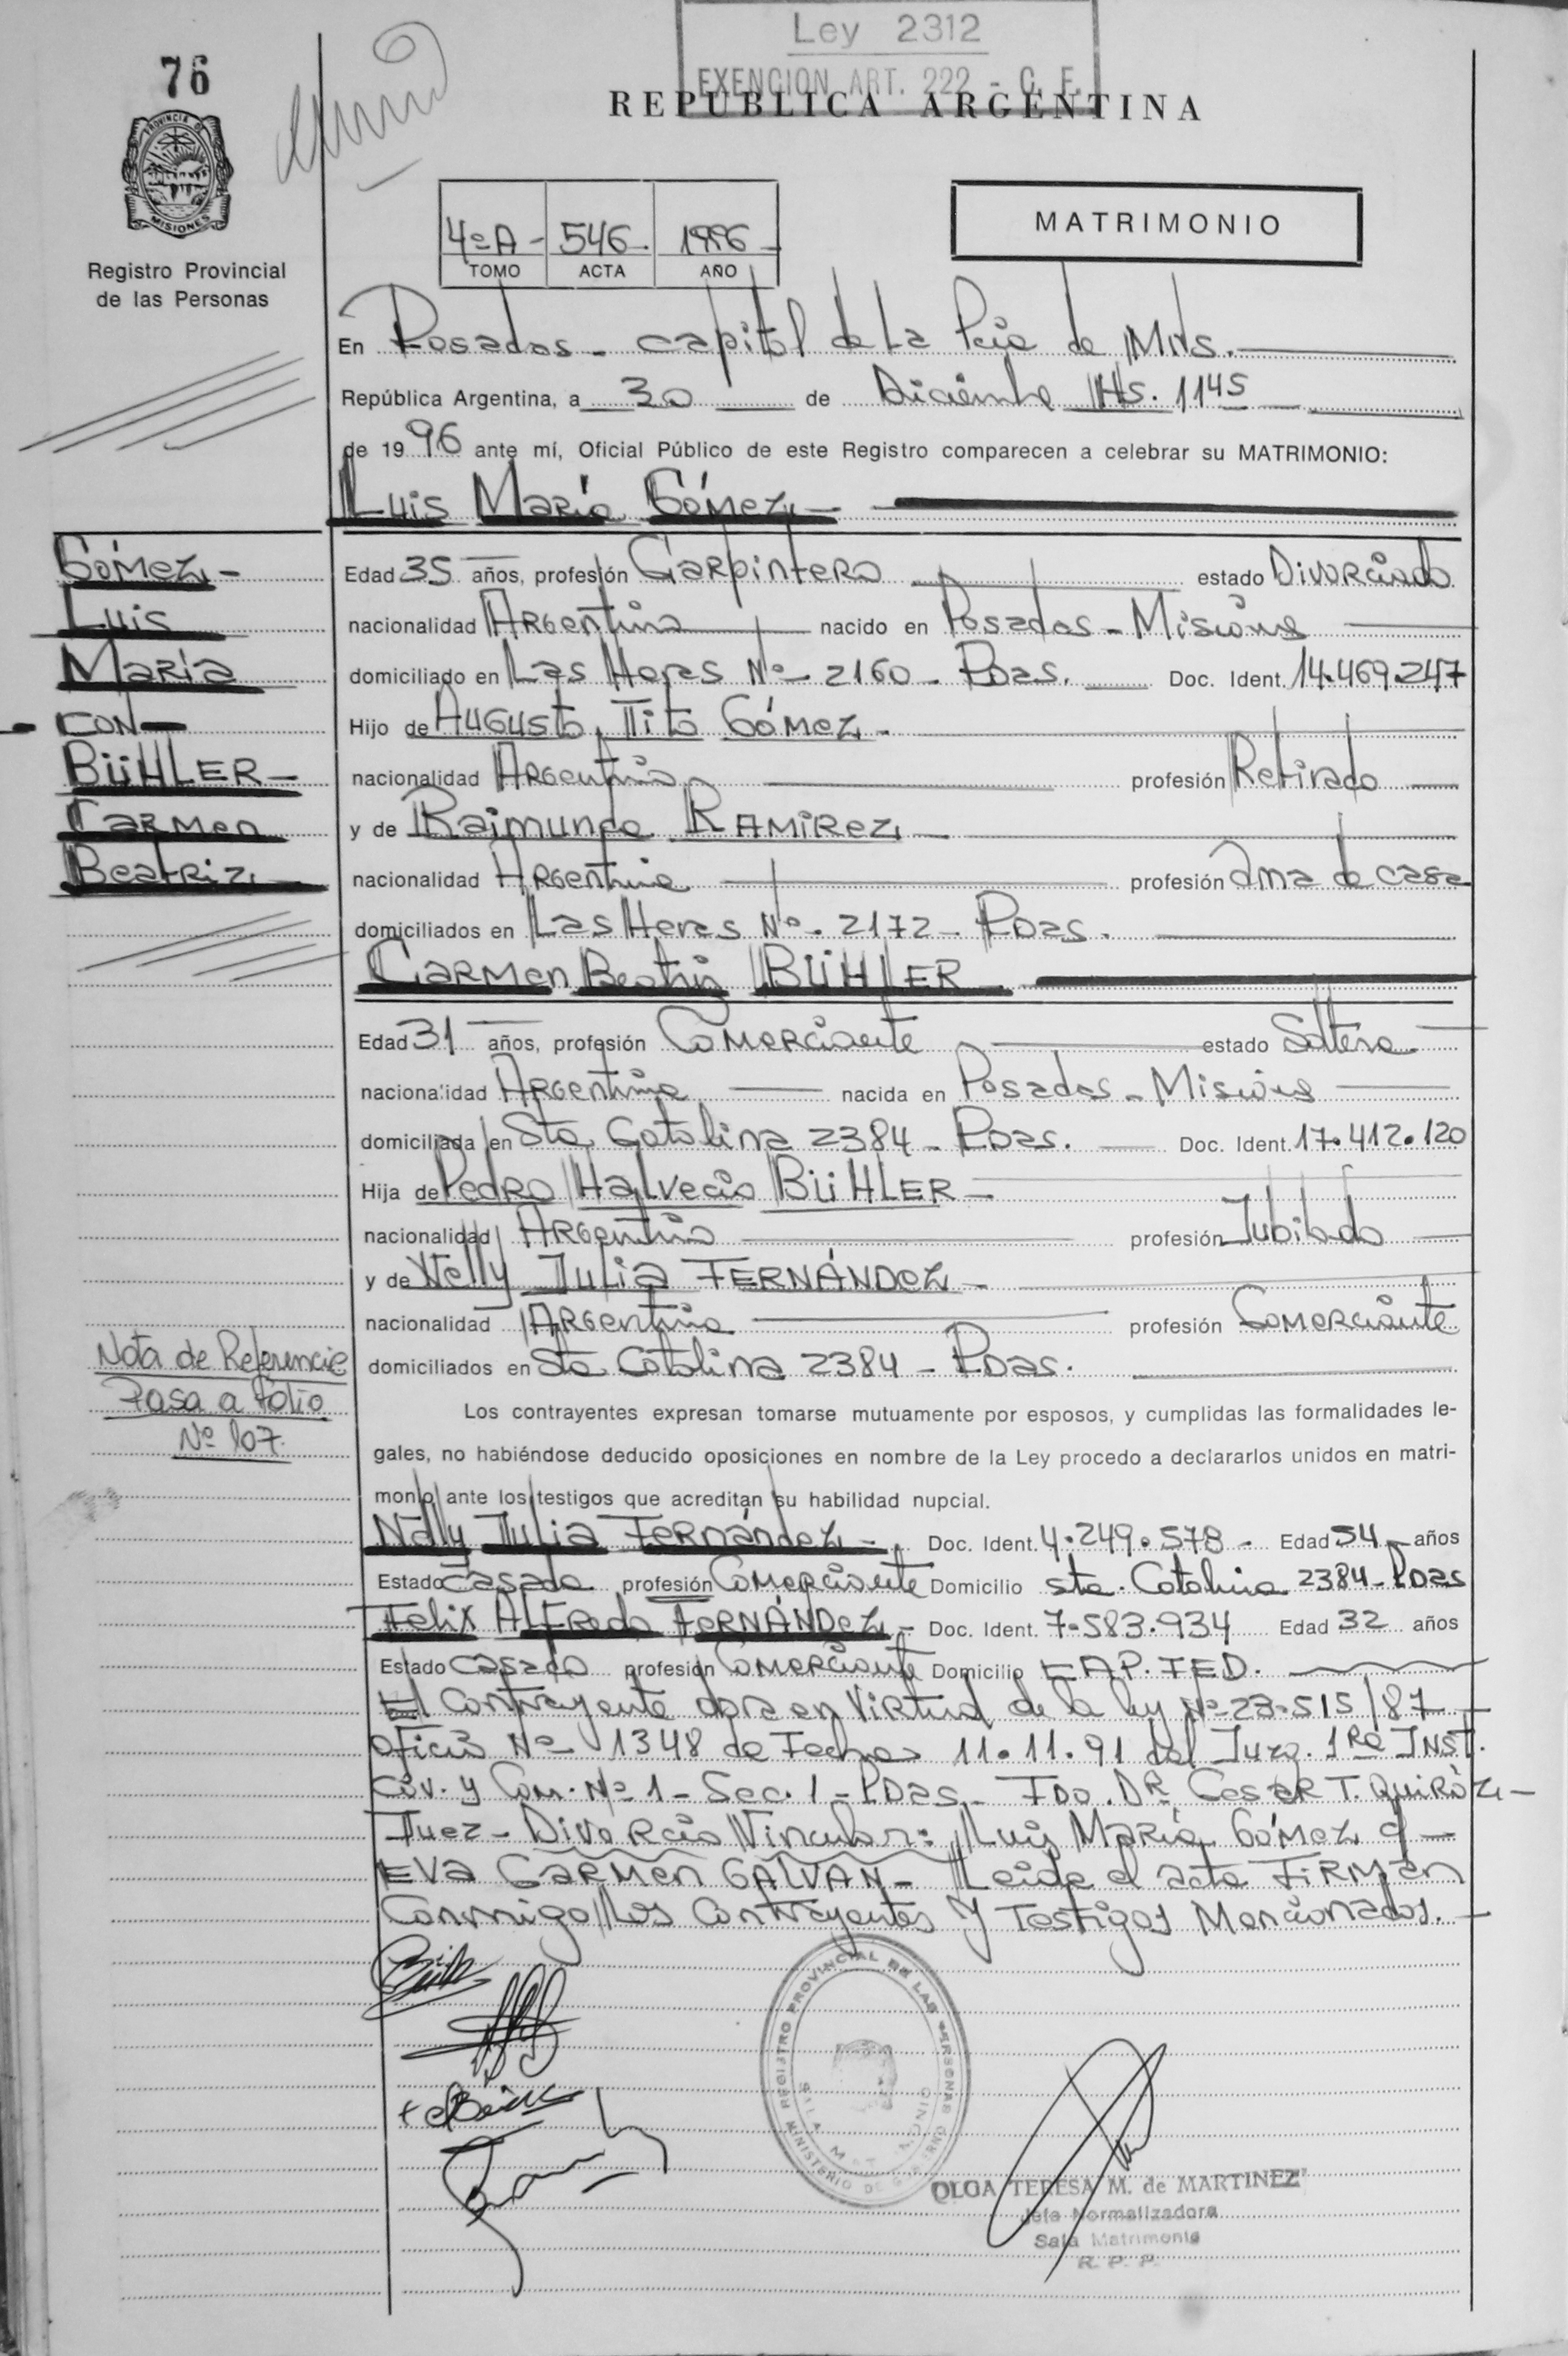 Ley 2312
EXENCION ART. 222 - C. F.
76
REPUBLICA ARGENTINA
PROVINCIA DE
MISIONES
Registro Provincial
de las Personas
4º A - 546 - 1996 -
TOMO ACTA AÑO
MATRIMONIO
En Posadas - capital de La Pcia de Mnes.
República Argentina, a 30 de Diciembre Hs. 11 45
de 19 96 ante mí, Oficial Público de este Registro comparecen a celebrar su MATRIMONIO:
Luis María Gómez -
Gómez -
Luis
María
- CON -
BÜHLER -
Carmen
Beatriz
Edad 35 años, profesión Carpintero estado Divorciado
nacionalidad Argentina nacido en Posadas - Misiones
domiciliado en Las Heras Nº - 2160 - Pdas. Doc. Ident. 14.469.247
Hijo de Augusto Tito Gómez -
nacionalidad Argentina profesión Retirado
y de Raimunda RAMIREZ -
nacionalidad Argentina profesión Ama de casa
domiciliados en Las Heras Nº - 2172 - Pdas.
Carmen Beatriz BÜHLER -
Edad 31 años, profesión Comerciante estado Soltera
nacionalidad Argentina nacida en Posadas - Misiones
domiciliada en Sta Catalina 2384 - Pdas. Doc. Ident. 17.412.120
Hija de Pedro Halvecio BÜHLER -
nacionalidad Argentina profesión Jubilado
y de Nelly Julia FERNÁNDEZ -
nacionalidad Argentina profesión Comerciante
domiciliados en Sta Catalina 2384 - Pdas.
Nota de Referencia
Pasa a folio
Nº 107.
Los contrayentes expresan tomarse mutuamente por esposos, y cumplidas las formalidades le-
gales, no habiéndose deducido oposiciones en nombre de la Ley procedo a declararlos unidos en matri-
monio ante los testigos que acreditan su habilidad nupcial.
Nelly Julia Fernández - Doc. Ident. 4.249.578 - Edad 54 años
Estado casada profesión Comerciante Domicilio sta. Catalina 2384 - Pdas
Felix Alfredo FERNÁNDEZ - Doc. Ident. 7.583.934 Edad 32 años
Estado casado profesión Comerciante Domicilio
El contrayente en Virtud de la ley Nº 23.515/87
oficio Nº - 1348 de Fecha 11.11.91 del Juzg. 1Ra INST.
Civ. y Com. Nº 1 - Sec. 1 - Pdas - FDO. DR Cesar T. QUIRÓZ -
Juez - Divorcio Vincular: Luis María Gómez c/ -
EVA Carmen GALVAN - Leída el acta FIRMAN
Conmigo Los Contrayentes Y Testigos Mencionados. -
REGISTRO PROVINCIAL DE LAS PERSONAS
MINISTERIO DE GOBIERNO
OLGA TERESA M. de MARTINEZ
Jefa Normalizadora
Sala Matrimonio
R. P. P.